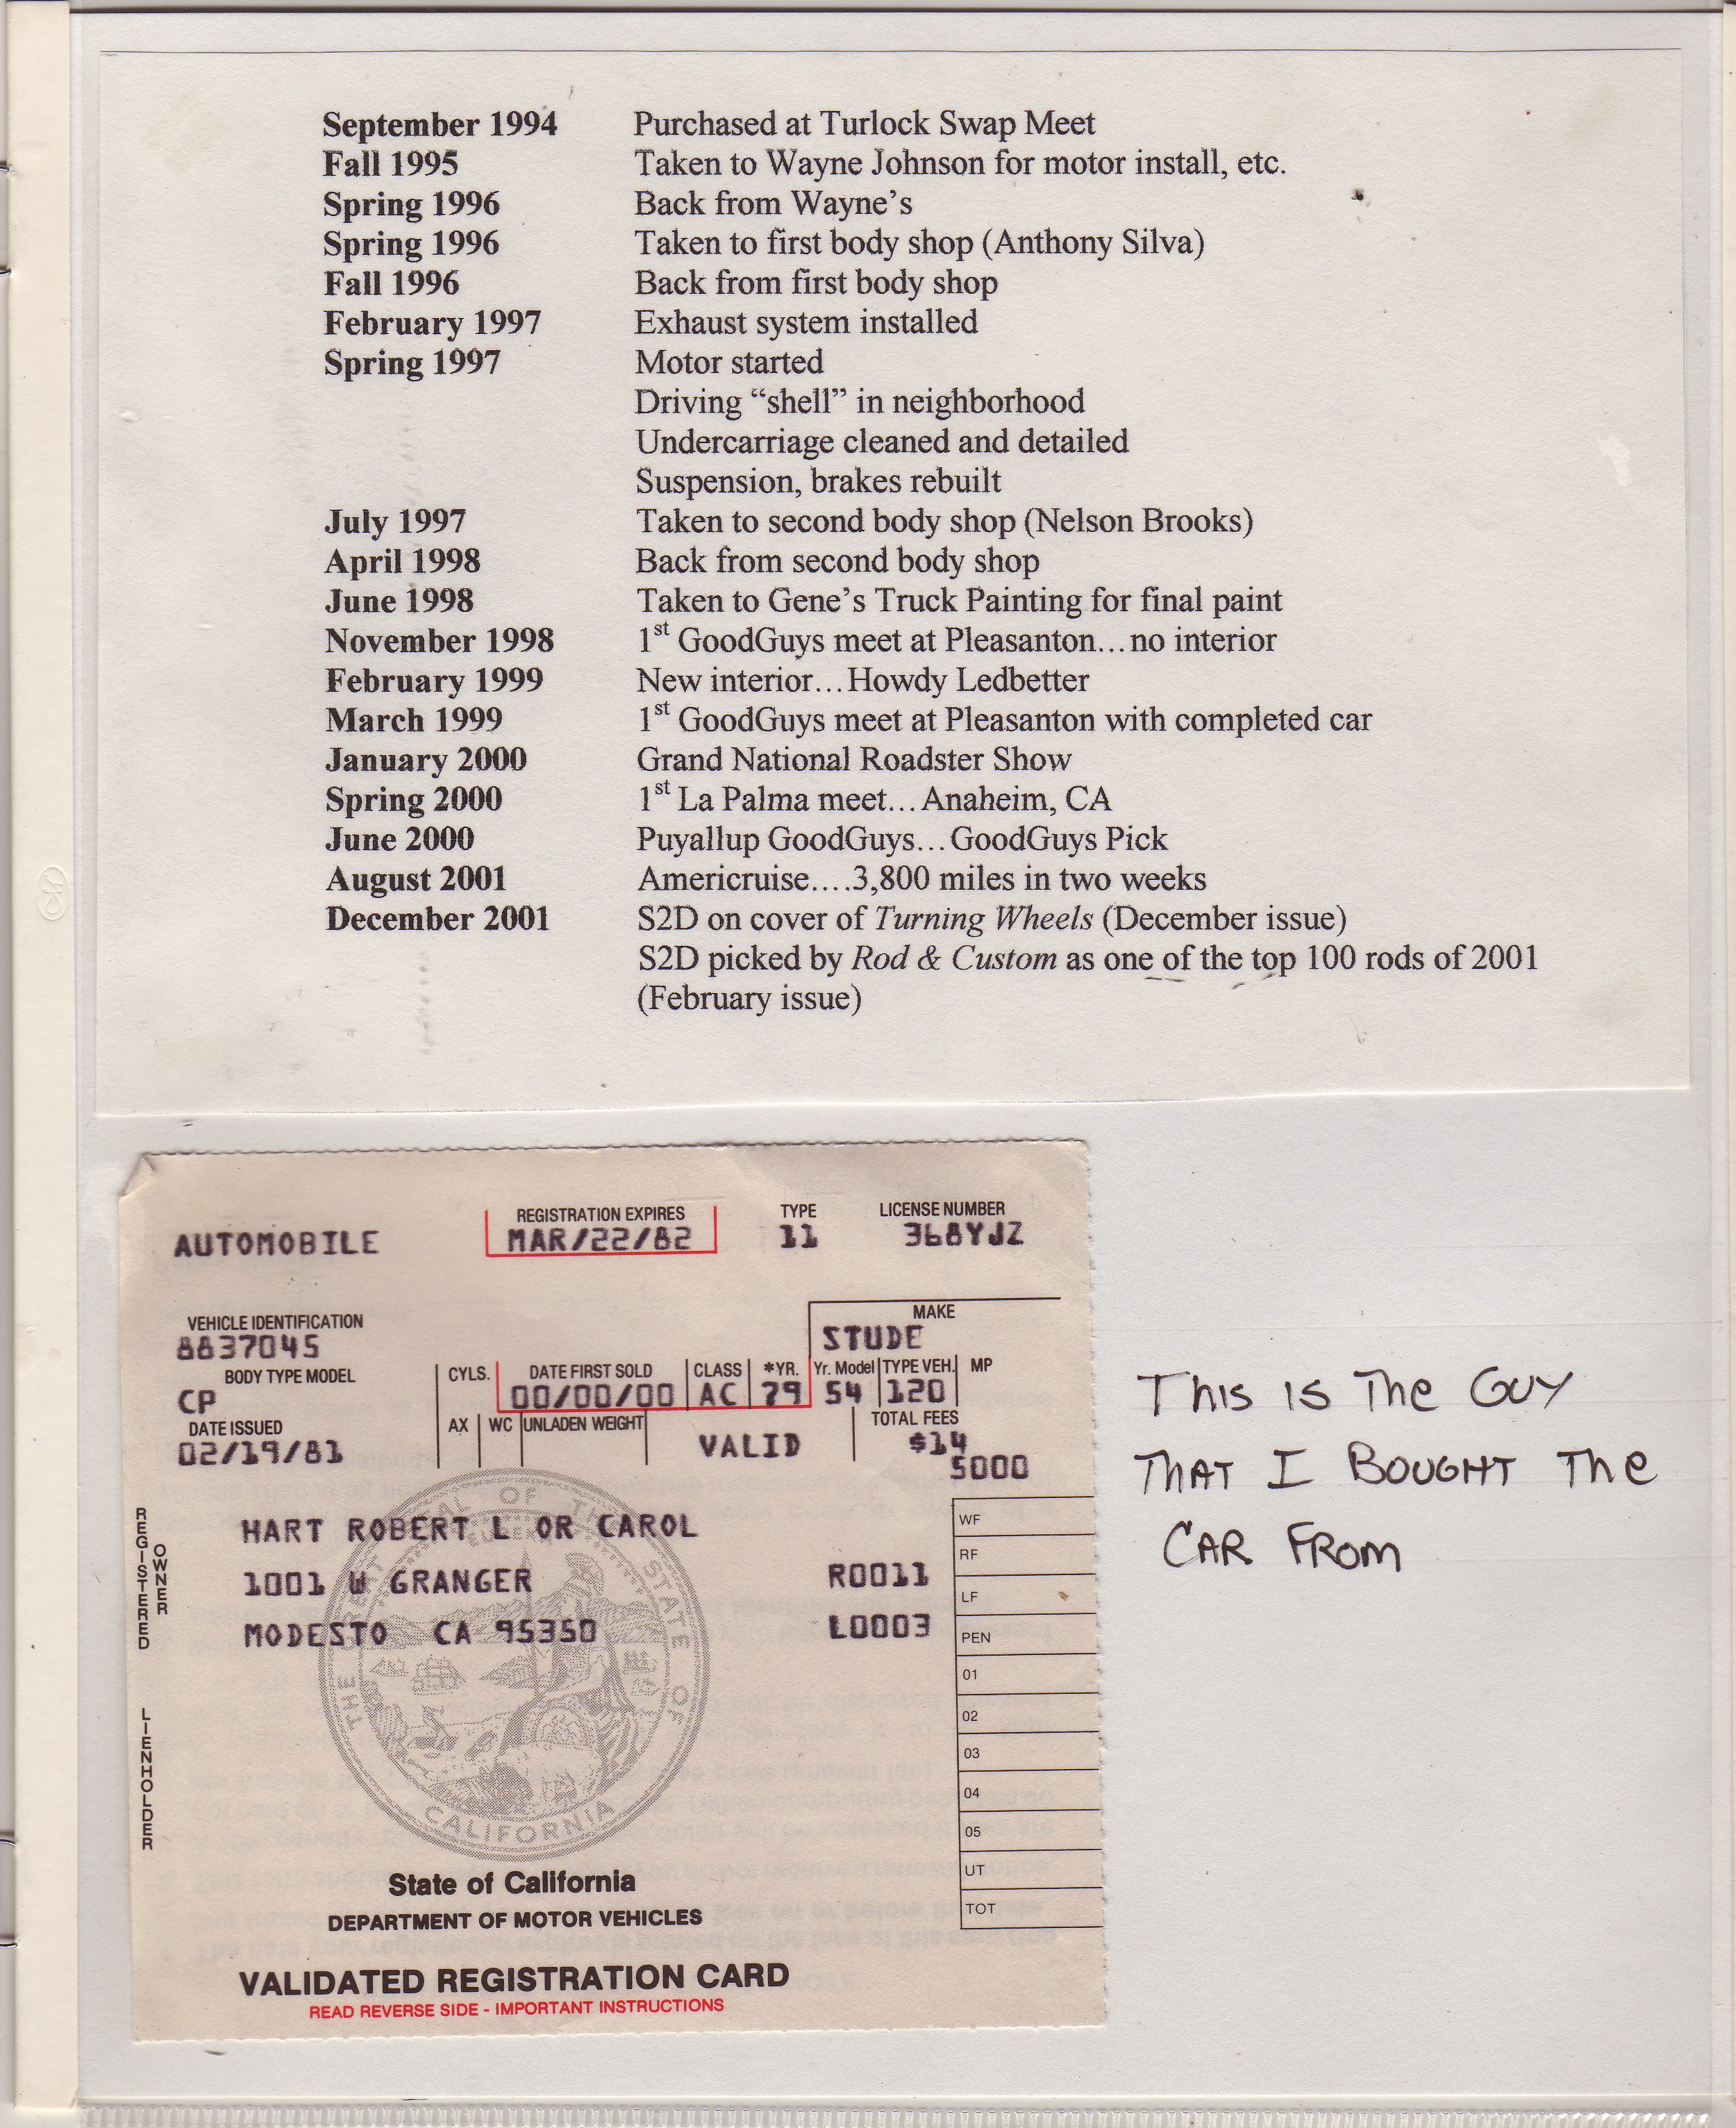 September 1994 Purchased at Turlock Swap Meet
Fall 1995 Taken to Wayne Johnson for motor install, etc.
Spring 1996 Back from Wayne’s
Spring 1996 Taken to first body shop (Anthony Silva)
Fall 1996 Back from first body shop
February 1997 Exhaust system installed
Spring 1997 Motor started
Driving “shell” in neighborhood
Undercarriage cleaned and detailed
Suspension, brakes rebuilt
July 1997 Taken to second body shop (Nelson Brooks)
April 1998 Back from second body shop
June 1998 Taken to Gene’s Truck Painting for final paint
November 1998 1st GoodGuys meet at Pleasanton…no interior
February 1999 New interior…Howdy Ledbetter
March 1999 1st GoodGuys meet at Pleasanton with completed car
January 2000 Grand National Roadster Show
Spring 2000 1st La Palma meet…Anaheim, CA
June 2000 Puyallup GoodGuys…GoodGuys Pick
August 2001 Americruise….3,800 miles in two weeks
December 2001 S2D on cover of Turning Wheels (December issue)
S2D picked by Rod & Custom as one of the top 100 rods of 2001
(February issue)
REGISTRATION EXPIRES TYPE LICENSE NUMBER
AUTOMOBILE MAR/22/82 11 368YJZ
VEHICLE IDENTIFICATION MAKE
8837045 STUDE
BODY TYPE MODEL CYLS. DATE FIRST SOLD CLASS *YR. Yr. Model TYPE VEH. MP
CP 00/00/00 AC 79 54 120
DATE ISSUED AX WC UNLADEN WEIGHT TOTAL FEES
02/19/81 VALID $14
5000
REGISTERED OWNER
HART ROBERT L OR CAROL
1001 W GRANGER R0011
MODESTO CA 95350 L0003
LIENHOLDER
WF
RF
LF
PEN
01
02
03
04
05
UT
TOT
THE GREAT SEAL OF THE STATE OF CALIFORNIA
State of California
DEPARTMENT OF MOTOR VEHICLES
VALIDATED REGISTRATION CARD
READ REVERSE SIDE - IMPORTANT INSTRUCTIONS
THIS IS THE GUY
THAT I BOUGHT THE
CAR FROM